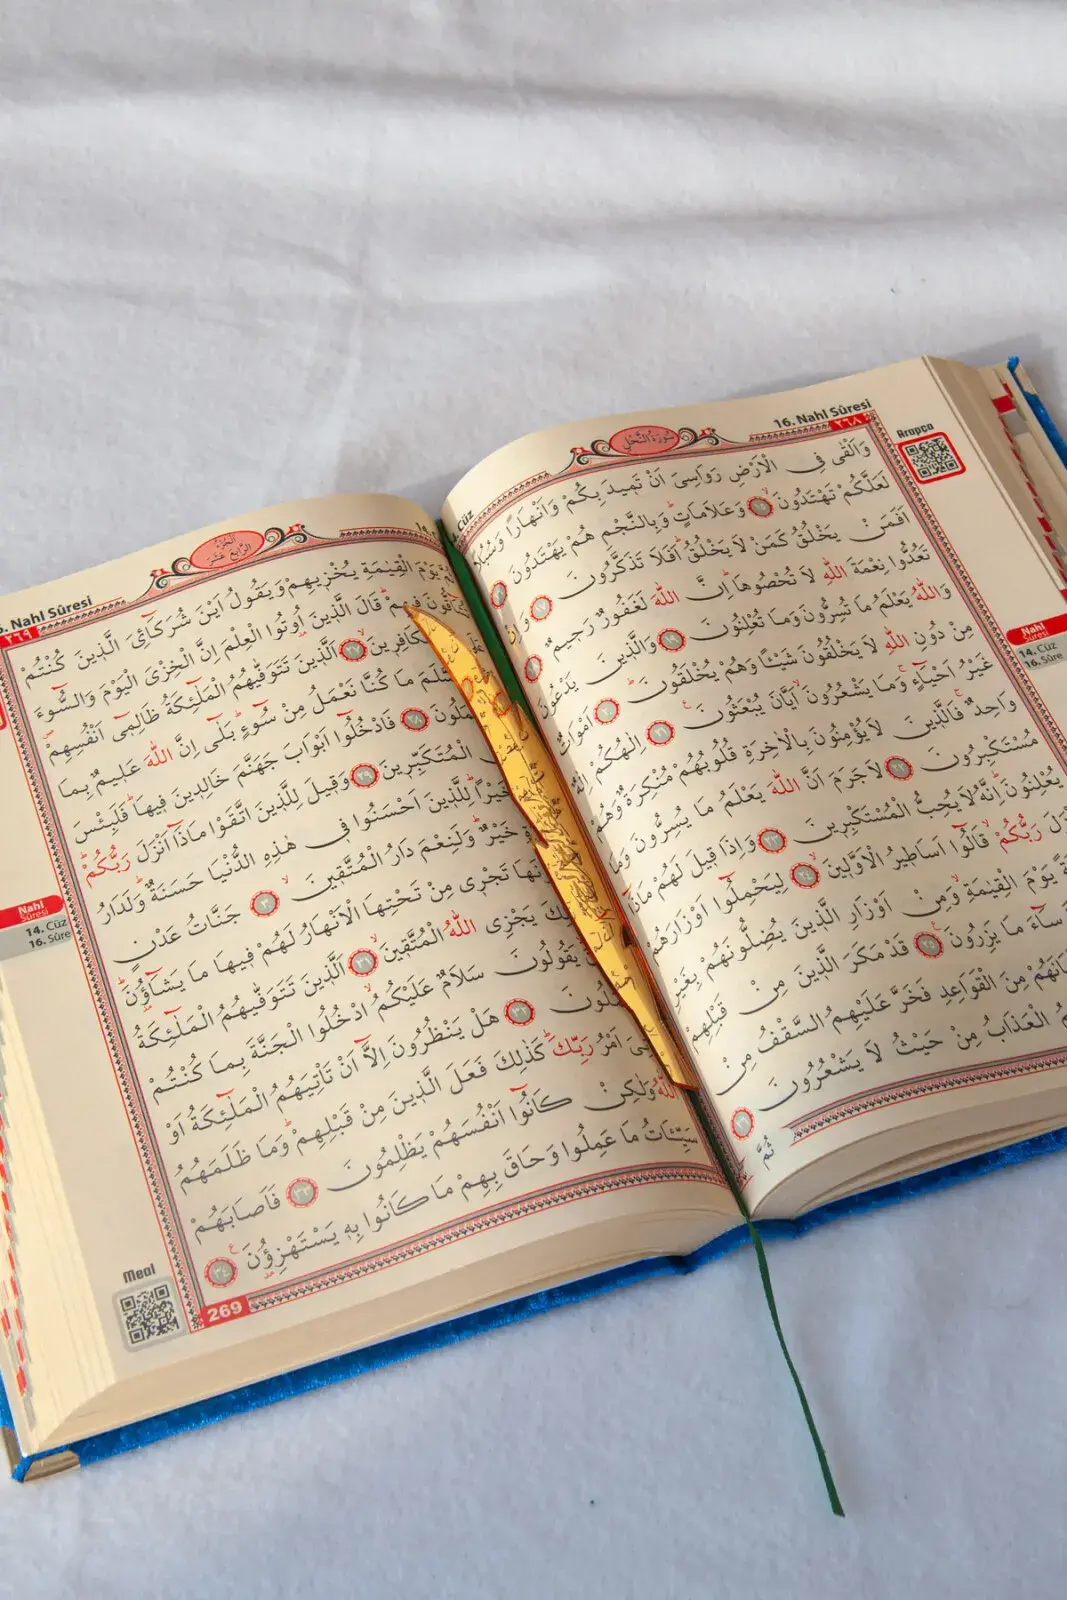 16. Nahl Sûresi
٢٦٨
سُورَةُ النَّحْلِ
Cüz
Arapça
وَاَلْقٰى فِي الْاَرْضِ رَوَاسِيَ اَنْ تَمٖيدَ بِكُمْ وَاَنْهَارًا وَسُبُلًا
لَعَلَّكُمْ تَهْتَدُونَ ١٥ وَعَلَامَاتٍ وَبِالنَّجْمِ هُمْ يَهْتَدُونَ ١٦
اَفَمَنْ يَخْلُقُ كَمَنْ لَا يَخْلُقُ اَفَلَا تَذَكَّرُونَ ١٧ وَاِنْ
تَعُدُّوا نِعْمَةَ اللّٰهِ لَا تُحْصُوهَا اِنَّ اللّٰهَ لَغَفُورٌ رَحٖيمٌ ١٨
وَاللّٰهُ يَعْلَمُ مَا تُسِرُّونَ وَمَا تُعْلِنُونَ ١٩ وَالَّذٖينَ يَدْعُونَ
مِنْ دُونِ اللّٰهِ لَا يَخْلُقُونَ شَيْئًا وَهُمْ يُخْلَقُونَ ٢٠ اَمْوَاتٌ
غَيْرُ اَحْيَٓاءٍ وَمَا يَشْعُرُونَ اَيَّانَ يُبْعَثُونَ ٢١ اِلٰهُكُمْ اِلٰهٌ
وَاحِدٌ فَالَّذٖينَ لَا يُؤْمِنُونَ بِالْاٰخِرَةِ قُلُوبُهُمْ مُنْكِرَةٌ وَهُمْ
مُسْتَكْبِرُونَ ٢٢ لَا جَرَمَ اَنَّ اللّٰهَ يَعْلَمُ مَا يُسِرُّونَ وَمَا
يُعْلِنُونَ اِنَّهُ لَا يُحِبُّ الْمُسْتَكْبِرٖينَ ٢٣ وَاِذَا قٖيلَ لَهُمْ مَاذَٓا
رَبُّكُمْ قَالُٓوا اَسَاطٖيرُ الْاَوَّلٖينَ ٢٤ لِيَحْمِلُٓوا اَوْزَارَهُمْ
يَوْمَ الْقِيٰمَةِ وَمِنْ اَوْزَارِ الَّذٖينَ يُضِلُّونَهُمْ بِغَيْرِ
سَٓاءَ مَا يَزِرُونَ ٢٥ قَدْ مَكَرَ الَّذٖينَ مِنْ قَبْلِهِمْ
مِنَ الْقَوَاعِدِ فَخَرَّ عَلَيْهِمُ السَّقْفُ مِنْ
الْعَذَابُ مِنْ حَيْثُ لَا يَشْعُرُونَ ٢٦
ثُمَّ
Nahl
Sûresi
14. Cüz
16. Sûre
Nahl Sûresi
٢٦٩
اَلْجُزْءُ
الرَّابِعُ عَشَرَ
يَوْمَ الْقِيٰمَةِ يُخْزٖيهِمْ وَيَقُولُ اَيْنَ شُرَكَٓائِيَ الَّذٖينَ كُنْتُمْ
فٖيهِمْ قَالَ الَّذٖينَ اُوتُوا الْعِلْمَ اِنَّ الْخِزْيَ الْيَوْمَ وَالسُّٓوءَ
الْكَافِرٖينَ ٢٧ اَلَّذٖينَ تَتَوَفّٰيهُمُ الْمَلٰٓئِكَةُ ظَالِمٖٓي اَنْفُسِهِمْ
مَا كُنَّا نَعْمَلُ مِنْ سُٓوءٍ بَلٰٓى اِنَّ اللّٰهَ عَلٖيمٌ بِمَا
٢٨ فَادْخُلُٓوا اَبْوَابَ جَهَنَّمَ خَالِدٖينَ فٖيهَا فَلَبِئْسَ
الْمُتَكَبِّرٖينَ ٢٩ وَقٖيلَ لِلَّذٖينَ اتَّقَوْا مَاذَٓا اَنْزَلَ رَبُّكُمْ
خَيْرًا لِلَّذٖينَ اَحْسَنُوا فٖي هٰذِهِ الدُّنْيَا حَسَنَةٌ وَلَدَارُ
خَيْرٌ وَلَنِعْمَ دَارُ الْمُتَّقٖينَ ٣٠ جَنَّاتُ عَدْنٍ
تَجْرٖي مِنْ تَحْتِهَا الْاَنْهَارُ لَهُمْ فٖيهَا مَا يَشَٓاؤُنَ
يَجْزِي اللّٰهُ الْمُتَّقٖينَ ٣١ اَلَّذٖينَ تَتَوَفّٰيهُمُ الْمَلٰٓئِكَةُ
يَقُولُونَ سَلَامٌ عَلَيْكُمُ ادْخُلُوا الْجَنَّةَ بِمَا كُنْتُمْ
٣٢ هَلْ يَنْظُرُونَ اِلَّٓا اَنْ تَأْتِيَهُمُ الْمَلٰٓئِكَةُ اَوْ
اَمْرُ رَبِّكَ كَذٰلِكَ فَعَلَ الَّذٖينَ مِنْ قَبْلِهِمْ وَمَا ظَلَمَهُمُ
اللّٰهُ وَلٰكِنْ كَانُٓوا اَنْفُسَهُمْ يَظْلِمُونَ ٣٣ فَاَصَابَهُمْ
سَيِّـَٔاتُ مَا عَمِلُوا وَحَاقَ بِهِمْ مَا كَانُوا بِهٖ يَسْتَهْزِؤُنَ ٣٤
Nahl
Sûresi
14. Cüz
16. Sûre
Meal
269